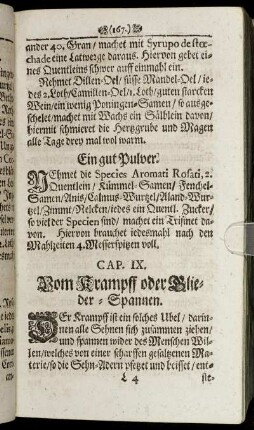 (167.)
ander 40. Gran / machet mit Syrupo de stœ-
chade eine Latwerge daraus. Hiervon gebet ei-
nes Quentleins schwer auff einmahl ein.
Nehmet Dillen-Oel / süsse Mandel-Oel / ie-
des 2. Loth / Camillen-Oel / 1. Loth / guten starcken
Wein / ein wenig Poningen-Samen / so ausge-
schelet / machet mit Wachs ein Sälblein davon /
hiermit schmieret die Hertzgrube und Magen
alle Tage drey mal wol warm.
Ein gut Pulver.
NEhmet die Species Aromati Rosati, 2.
Quentlein / Kümmel-Samen / Fenchel-
Samen / Anis / Calmus-Wurtzel / Aland-Wur-
tzel / Zimmt / Nelcken / iedes ein Quentl. Zucker /
so viel der Species sind / machet ein Trisnet da-
von. Hiervon brauchet iedesmahl nach den
Mahlzeiten 4. Messerspitzen voll.
CAP. IX.
Vom Krampff oder Glie-
der-Spannen.
DEr Krampff ist ein solches Ubel / darin-
nen alle Sehnen sich zusammen ziehen /
und spannen wider des Menschen Wil-
len / welches von einer scharffen gesaltzenen Ma-
terie / so die Sehn-Adern pfetzet und beisset / ent-
L 4 ste-